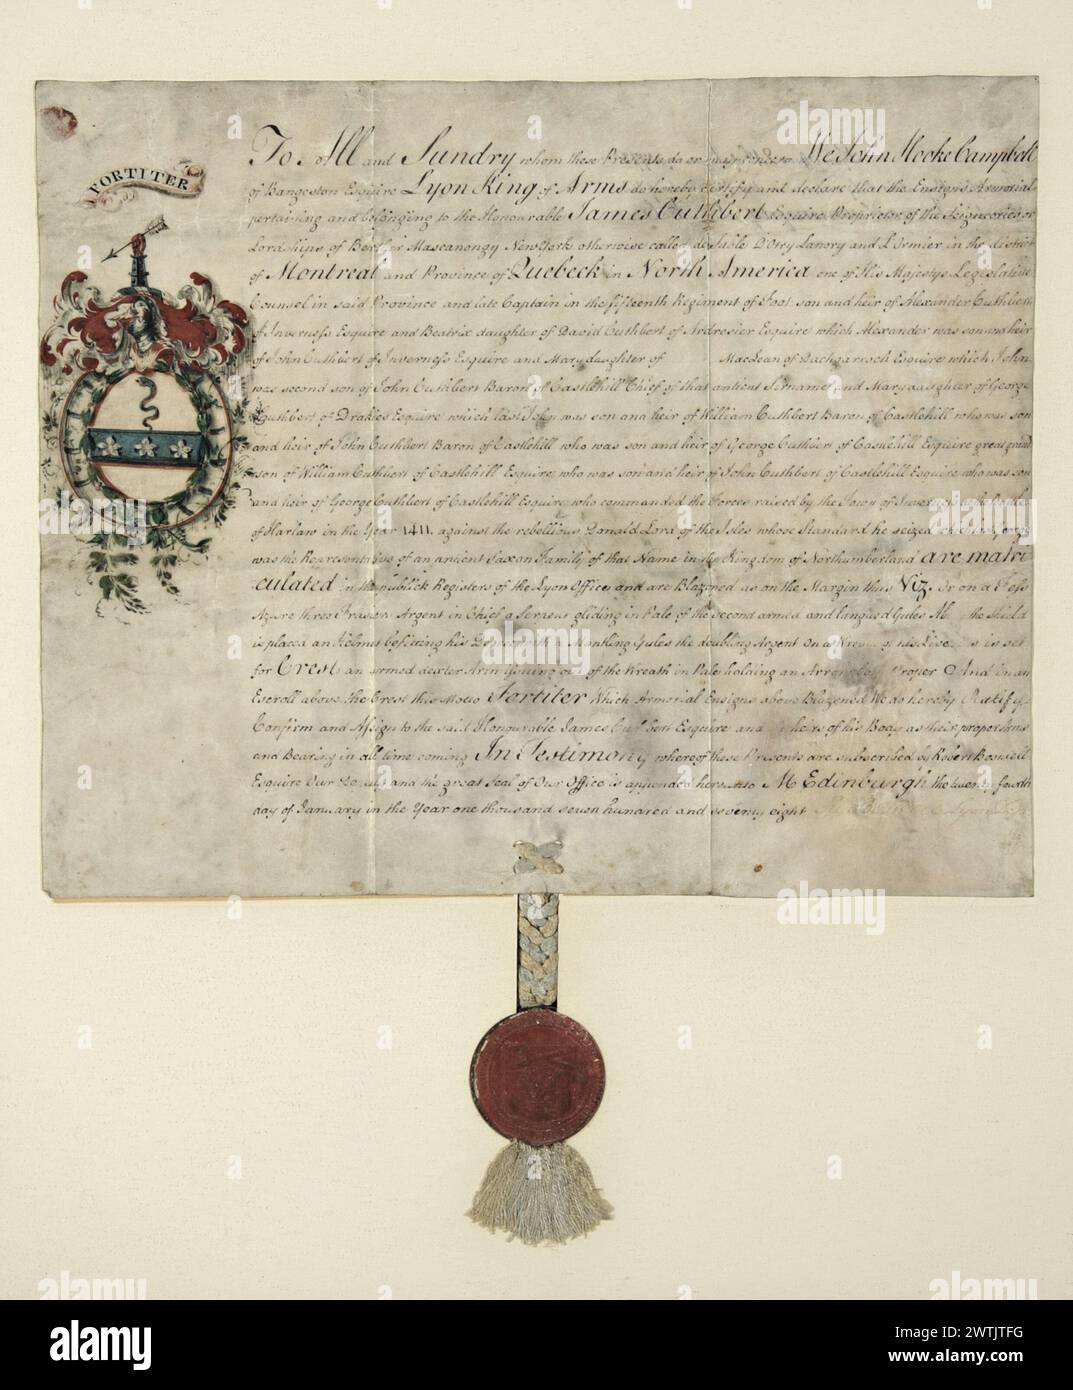 FORTITER
To All and Sundry whom these Presents do or may concern We John Hooke Campbell
of Bangeston Esquire Lyon King of Arms do hereby certify and declare that the Ensigns Armorial
pertaining and belonging to the Honourable James Cuthbert Esquire Proprietor of the Seigneories or
Lordships of Berthier Mascanongy New York otherwise called de Sable D'Orvy Lanory and in the district
of Montreal and Province of Quebeck in North America one of His Majestys Legislative
Counsel in said Province and late Captain in the fifteenth Regiment of Foot son and heir of Alexander Cuthbert
of Inverness Esquire and Beatrix daughter of David Cuthbert of Ardrosier Esquire which Alexander was son and heir
of John Cuthbert of Inverness Esquire and Mary daughter of MacLean of Dachgarroch Esquire which John
was second son of John Cuthbert Baron of Castlehill Chief of that antient Sirname and Mary daughter of George
Cuthbert of Drakies Esquire which last John was son and heir of William Cuthbert Baron of Castlehill who was son
and heir of John Cuthbert Baron of Castlehill who was son and heir of George Cuthbert of Castlehill Esquire great grand
son of William Cuthbert of Castlehill Esquire who was son and heir of John Cuthbert of Castlehill Esquire who was son
and heir of George Cuthbert of Castlehill Esquire who commanded the Forces raised by the Town of Inverness at the battle
of Harlaw in the Year 1411 against the rebellious Donald Lord of the Isles whose Standard he seized which George
was the Representative of an antient Saxon Family of that Name in the Kingdom of Northumberland are matri
culated in the publick Registers of the Lyon Office and are Blazoned as on the Margin thus Viz. Or on a Fess
Azure three Frasiers Argent in Chief a Serpent gliding in Pale of the second armed and langued Gules the shield
is placed an Helmet befitting his Degree with a Mantling Gules the doubling Argent On a Wreath of his is set
for Crest an armed dexter Arm issuing out of the Wreath in Pale holding an Arrow Proper And in an
Escroll above the Crest this Motto Fortiter Which Armorial Ensigns above Blazoned We do hereby Ratify
Confirm and Assign to the said Honourable James Cuthbert Esquire and heirs of his Body as their proper Arms
and Bearing in all time coming In Testimony whereof these Presents are subscribed by Robert Boswell
Esquire Our Deputy and the great Seal of Our Office is appended hereunto At Edinburgh the twenty fourth
day of January in the Year one thousand seven hundred and seventy eight
alamy
Image ID: 2WTJTFG
www.alamy.com